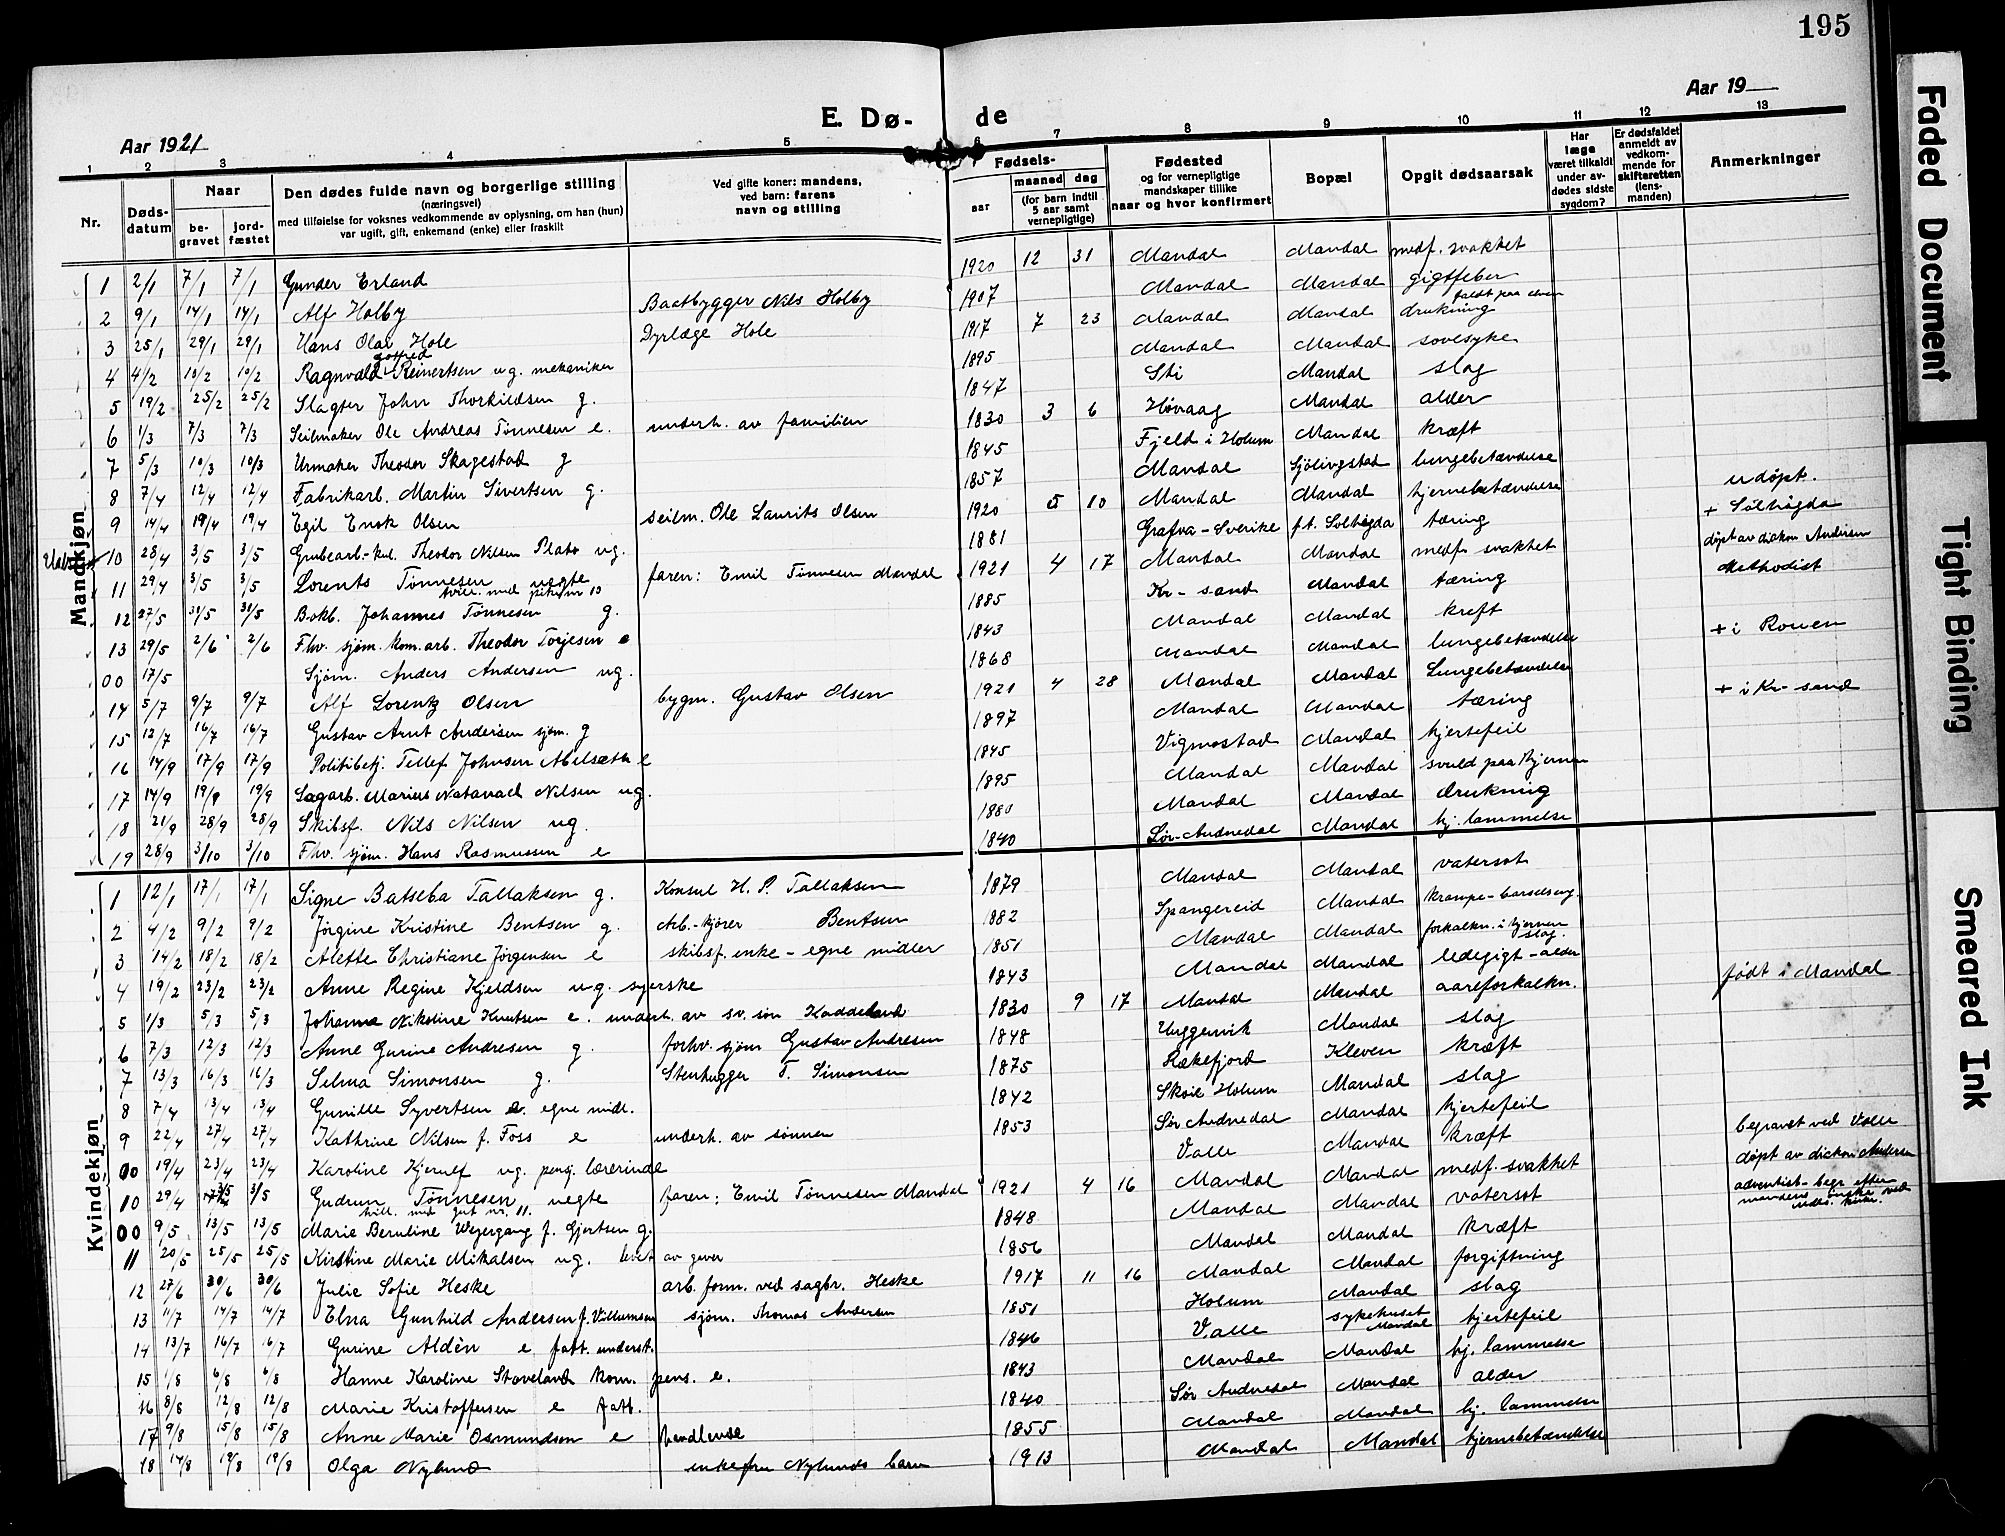 195
Aar 1921
E. Dø-
de
Aar 19
1 2 3 4 5 6 7 8 9 10 11 12 13
Nr.
Døds-
datum
Naar
be-
gravet
jord-
fæstet
Den dødes fulde navn og borgerlige stilling
(næringsvei)
med tilføielse for voksnes vedkommende av oplysning, om han (hun)
var ugift, gift, enkemand (enke) eller fraskilt
Ved gifte koner: mandens,
ved barn: farens
navn og stilling
Fødsels-
aar
maaned dag
(for barn indtil
5 aar samt
vernepligtige)
Fødested
og for vernepligtige
mandskaper tillike
naar og hvor konfirmert
Bopæl
Opgit dødsaarsak
Har
læge
været tilkaldt
under av-
dødes sidste
sygdom?
Er dødsfaldet
anmeldt av
vedkom-
mende for
skifteretten
(lens-
manden)
Anmerkninger
Mandkjøn
1 2/1 7/1 7/1 Gunder Erland 1920 12 31 Mandal Mandal medf. svakhet
2 9/1 14/1 14/1 Alf Holby Baatbygger Nils Holby 1907 Mandal Mandal gigtfeber
3 25/1 29/1 29/1 Hans Olav Hole Dyrlæge Hole 1917 7 23 Mandal Mandal drukning faldt paa elven
4 4/2 10/2 10/2 Ragnvald Gotfred Reinertsen ug. mekaniker 1895 Mandal Mandal sovesyke
5 19/2 25/2 25/2 Slagter John Thorkildsen g. 1847 Sti Mandal slag
6 1/3 7/3 7/3 Seilmaker Ole Andreas Tønnesen e. underh. av familien 1830 3 6 Høvaag Mandal alder
7 5/3 10/3 10/3 Urmaker Theodor Skagestad g 1845 Fjeld i Holum Mandal kræft
8 7/4 12/4 12/4 Fabrikarb. Martin Sivertsen g. 1857 Mandal Sjölingstad lungebetændelse
9 14/4 19/4 19/4 Egil Enok Olsen seilm. Ole Laurits Olsen 1920 5 10 Mandal Mandal hjernebetændelse udøpt.
10 28/4 3/5 3/5 Grubearb. Theodor Nilsen Plato ug. 1881 Grafva - Sverike p.t. Solhögda tæring + Solhögda
11 29/4 3/5 3/5 Lorents Tønnesen uegte tvill. med pike nr 10 faren: Emil Tønnesen Mandal 1921 4 17 Mandal Mandal medf. svakhet døpt av diakon Andersen
12 27/5 31/5 31/5 Bokb. Johannes Tønnesen g. 1885 Kr-sand Mandal tæring Methodist
13 29/5 2/6 2/6 Fhv. sjøm. kom.arb. Theodor Torjesen e 1843 Mandal Mandal kreft
00 17/5 Sjøm. Anders Andersen ug. 1868 Mandal Mandal lungebetændelse + i Rouen
14 5/7 9/7 9/7 Alf Lorentz Olsen bygm. Gustav Olsen 1921 4 28 Mandal Mandal Lungebetændelse
15 12/7 16/7 16/7 Gustav Arnt Andersen sjøm. g 1897 Mandal Mandal tæring + i Kr-sand
16 14/9 17/9 17/9 Politibetj. Tellef Johnsen Abelsæth e 1845 Vigmostad Mandal hjertefeil
17 14/9 19/9 19/9 Sagarb. Marius Natanael Nilsen ug. 1895 Mandal Mandal svuld paa hjernen
18 21/9 28/9 28/9 Skibsf. Nils Nilsen ug. 1880 Mandal Mandal drukning
19 28/9 3/10 3/10 Fhv. sjøm. Hans Rasmussen e 1840 Sør-Audnedal Mandal hj. lammelse
Kvindekjøn
1 12/1 17/1 17/1 Signe Batseba Tallaksen g. Konsul H. P. Tallaksen 1879 Mandal Mandal vatersot
2 4/2 9/2 9/2 Jørgine Kristine Bentsen g. Arb.-kjører Bentsen 1882 Spangereid Mandal krampe-barselseng.
3 14/2 18/2 18/2 Alette Christiane Jørgensen e skibsf. enke - egne midler 1851 Mandal Mandal forkalkn. i hjernen slag.
4 19/2 23/2 23/2 Anne Regine Kjeldsen ug. syerske 1843 Mandal Mandal ledegigt - alder
5 1/3 5/3 5/3 Johanna Nikoline Knutsen e. underh. av sv. søn Haddeland 1830 9 17 Mandal Mandal aareforkalkn. født i Mandal
6 7/3 12/3 12/3 Anne Gurine Andresen g. forhv. sjøm Gustav Andresen 1848 Unggenvik Mandal slag
7 13/3 16/3 16/3 Selma Simonsen g. Stenhugger T. Simonsen 1875 Rækefjord Kleven kræft
8 7/4 13/4 13/4 Gunille Syvertsen e. egne midl. 1842 Skoie Holum Mandal slag
9 22/4 27/4 27/4 Kathrine Nilsen f. Foss e underh. av sønnen 1853 Sør Audnedal Mandal hjertefeil
00 19/4 23/4 23/4 Karoline Kjerulf ug. pensj. lærerinde Valle Mandal kræft begravet ved Valle
10 29/4 3/5 3/5 Gudrun Tønnesen uegte tvill. med gut nr. 11. faren: Emil Tønnesen Mandal 1921 4 16 Mandal Mandal medf. svakhet døpt av diakon Andersen
00 9/5 13/5 13/5 Marie Berntine Weyergang f. Gjertsen g. 1848 Mandal Mandal vatersot adventist - begr. efter mandens ønske ved
11 20/5 25/5 25/5 Kirstine Marie Mikalsen ug. levet av gaver 1856 Mandal Mandal kræft
12 27/6 30/6 30/6 Julie Sofie Heske arb. form. ved sagbr. Heske 1917 11 16 Mandal Mandal forgiftning
13 11/7 14/7 14/7 Elna Gunhild Andersen f. Villumsen sjøm. Thomas Andersen 1851 Holum Mandal slag
14 13/7 16/7 16/7 Gurine Aldén e fatt. underst. 1846 Valle sykehuset Mandal hjertefeil
15 1/8 6/8 6/8 Hanne Karoline Staveland kom. pens. e. 1843 Mandal Mandal hj. lammelse
16 8/8 12/8 12/8 Marie Kristoffersen e fatt. 1840 Sør Audnedal Mandal alder
17 9/8 15/8 15/8 Anne Marie Osmundsen e handlende 1855 Mandal Mandal hj. lammelse
18 14/8 19/8 19/8 Olga Nylund enkefru Nylunds barn 1913 Mandal Mandal hjernebetændelse
Faded Document
Tight Binding
Smeared Ink